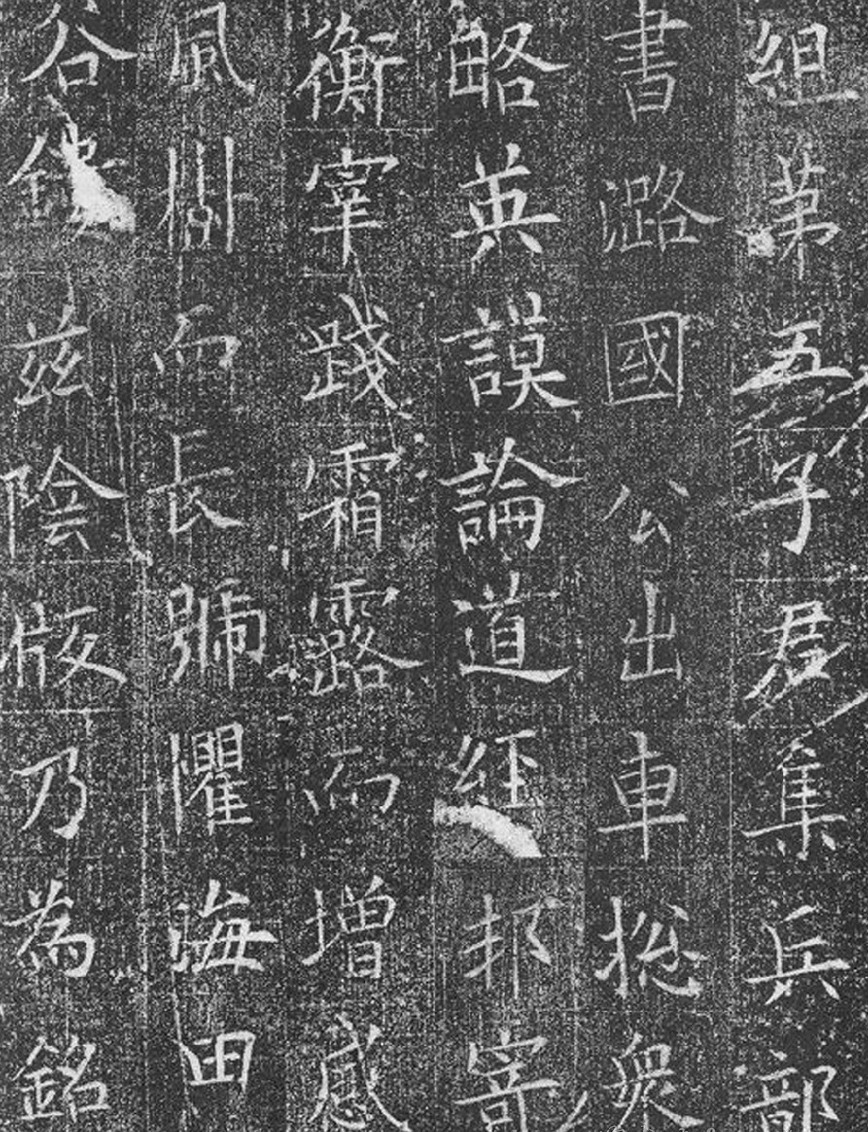 組苐五子君集兵部
書潞國公出車揔衆
略英謨論道經邦寄
衡宰踐霜露而增感
風樹而長號懼海田
谷鏤兹陰版乃為銘